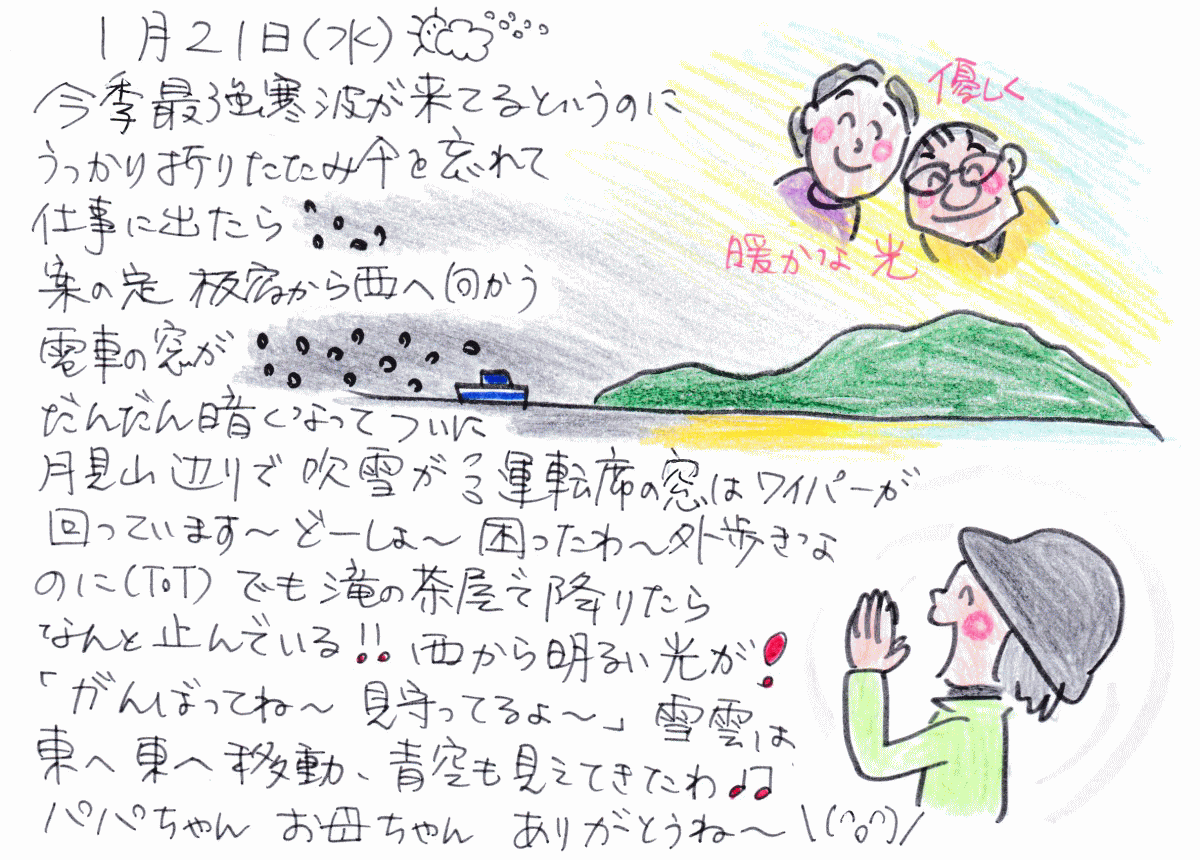 1月21日(水)
今季最強寒波が来てるというのに
うっかり折りたたみ傘を忘れて
仕事に出たら
案の定 板宿から西へ向かう
電車の窓が
だんだん暗くなってついに
月見山辺りで吹雪が 運転席の窓はワイパーが
回っています〜どーしょ〜困ったわ〜外歩きな
のに(ToT) でも滝の茶屋で降りたら
なんと止んでいる!! 西から明るい光が!
「がんばってね〜 見守ってるよ〜」雪雲は
東へ東へ移動、青空も見えてきたわ♪♫
パパちゃん お母ちゃん ありがとうね〜\(^o^)/
優しく
暖かな光